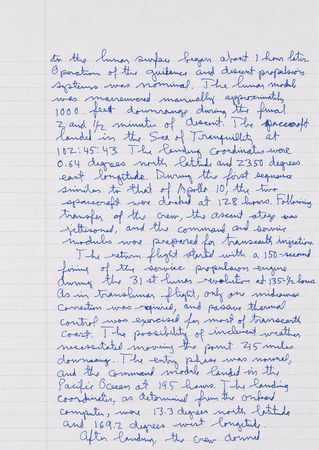 to the lunar surface began about 1 hour later.
Operation of the guidance and descent propulsion
systems was nominal. The lunar module
was maneuvered manually approximately
1000 feet downrange during the final
2 and 1/2 minutes of descent. The spacecraft
landed in the Sea of Tranquillity at
102:45:43. The landing coordinates were
0.64 degrees north latitude and 23.50 degrees
east longitude. During the first sequence
similar to that of Apollo 10, the two
spacecraft were docked at 128 hours. Following
transfer of the crew, the ascent stage was
jettisoned, and the command and service
modules was prepared for transearth injection
The return flight started with a 150-second
firing of the service propulsion engine
during the 31st lunar revolution at 135-1/2 hours
As in translunar flight, only one midcourse
correction was required, and passive thermal
control was exercised for most of transearth
coast. The possibility of inclement weather
necessitated moving the point 215 miles
downrange. The entry phase was normal,
and the command module landed in the
Pacific Ocean at 195 hours. The landing
coordinates, as determined from the onboard
computer, were 13.3 degrees north latitude
and 169.2 degrees west longitude.
After landing, the crew donned